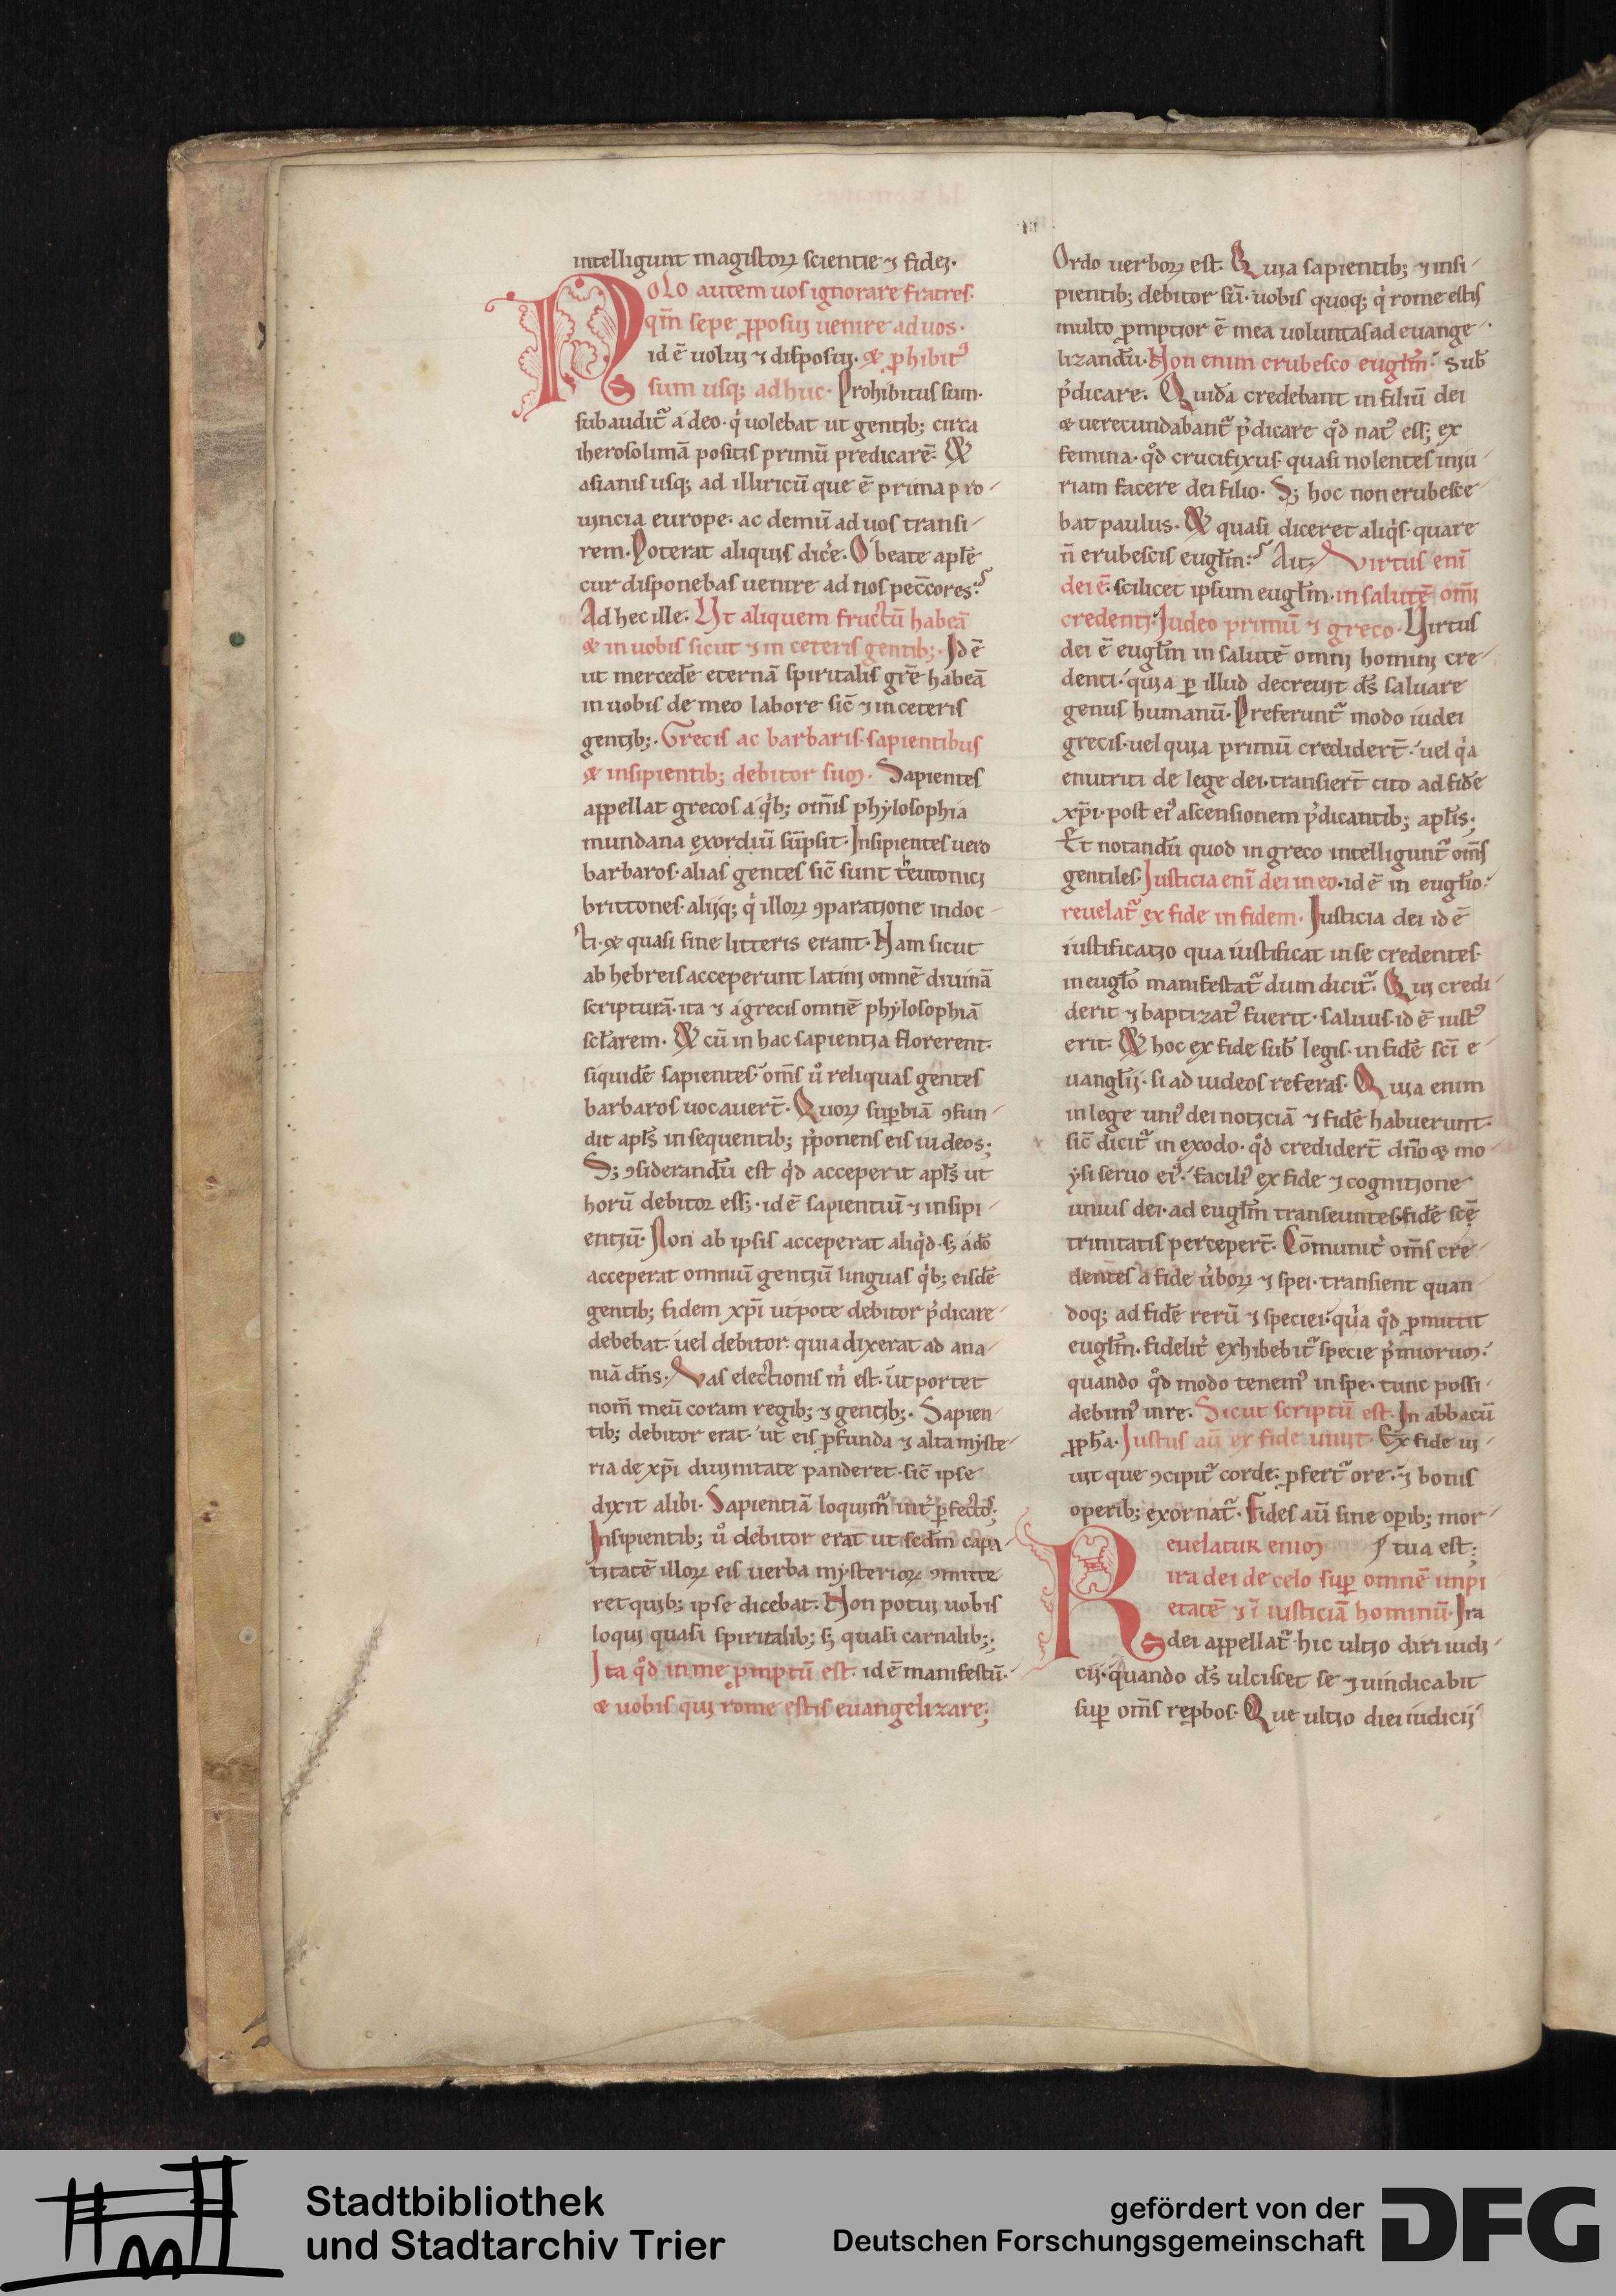 intelligunt magistoꝝ scientie ⁊ fidei.
Nolo autem uos ignorare fratres.
qm̄ sepe ꝓposui uenire ad uos.
id ē uolui ⁊ disposui. & ꝓhibitꝰ
sum usq; ad huc. Prohibitus sum.
subaudit᷑ a deo. qͥ uolebat ut gentib; circa
iherosolimā positis primū predicarē. Et
asianis usq; ad illiricū que ē prima pro
uincia europe. ac demū ad uos transi
rem. Poterat aliquis dic̄e. O beate apl̄e
cur disponebas uenire ad nos pecc̄ores?
Ad hec ille. Ut aliquem fructū habeā
& in uobis sicut ⁊ in ceteris gentib;. Id ē
ut mercedē eternā spiritalis gr̄e habeā
in uobis de meo labore sic̄ ⁊ in ceteris
gentib;. Grecis ac barbaris. sapientibus
& insipientib; debitor sum. Sapientes
appellat grecos a qͥb; om̄is phylosophia
mundana exordiū sūpsit. Insipientes uero
barbaros. alias gentes sic̄ sunt teutonici
brittones. aliiq; qͥ illoꝝ ꝯparatione indoc
ti. & quasi sine litteris erant. Nam sicut
ab hebreis acceperunt latini omnē diuinā
scripturā. ita ⁊ a grecis omnē phylosophiā
scl̄arem. Et cū in hac sapientia florerent.
siquidē sapientes. om̄s uͦ reliquas gentes
barbaros uocauert̄. Quoꝝ suꝑbiā ꝯfun
dit apl̄s in sequentib; p̄ponens eis iudeos;
S; ꝯsiderandū est qͥd acceperit apl̄s ut
horū debitor ess;. id ē sapientiū ⁊ insipi
entiū. Non ab ipsis acceperat aliqͥd. s; a dō
acceperat omniū gentiū linguas qͥb; eisdē
gentib; fidem xp̄i utpote debitor p̄dicare
debebat. uel debitor. quia dixerat ad ana
niā dn̄s. Vas electionis m̄ est. ut portet
nom̄ meū coram regib; ⁊ gentib;. Sapien
tib; debitor erat. ut eis ꝓfunda ⁊ alta myste
ria de xp̄i diuinitate panderet. sic̄ ipse
dixit alibi. Sapientiā loquim᷑ int̄ ꝑfectos;
Insipientib; uͦ debitor erat ut scdm̄ capa
citatē illoꝝ eis uerba mysterioꝝ ꝯmitte
ret quib; ipse dicebat. Non potui uobis
loqui quasi spiritalib; s; quasi carnalib;.
Ita qͦd in me ꝓmptū est. id ē manifestū.
& uobis qui rome estis euangelizare;
Ordo uerboꝝ est. Quia sapientib; ⁊ insi
pientib; debitor sū. uobis quoq; qͥ rome estis
multo ꝓmptior ē mea uoluntas ad euange
lizandū. Non enim erubesco eugl̄m. sub̄
p̄dicare. Quidā credebant in filiū dei
& uerecundabant᷑ p̄dicare qͦd natꝰ ess; ex
femina. qͦd crucifixus. quasi nolentes iniu
riam facere dei filio. S; hoc non erubesce
bat paulus. Et quasi diceret aliqͥs. quare
n̄ erubescis eugl̄m? Ait. Virtus eni
dei ē. scilicet ipsum eugl̄m. in salutē om̄i
credenti. Iudeo primū ⁊ greco. Virtus
dei ē eugl̄m in salutē omni homini cre
denti. quia ꝑ illud decreuit dr̄s saluare
genus humanū. Preferunt᷑ modo iudei
grecis. uel quia primū crediderт̄. uel qͥa
enutriti de lege dei. transiert̄ cito ad fidē
xp̄i. post eiꝰ ascensionem p̄dicantib; apl̄is;
Et notandū quod in greco intelligunt᷑ om̄s
gentiles. Iusticia eni dei in eo. id ē in eugl̄io.
reuelat᷑ ex fide in fidem. Iusticia dei id ē
iustificatio qua iustificat in se credentes.
in eugl̄o manifestat᷑ dum dicit᷑. Qui credi
derit ⁊ baptizatꝰ fuerit. saluus. id ē iustꝰ
erit. Et hoc ex fide sub̄ legis. in fidē sci e
uangl̄ii. si ad iudeos referas. Quia enim
in lege uniꝰ dei noticiā ⁊ fidē habuerunt.
sic̄ dicit᷑ in exodo. qͦd credidert̄ dn̄o & mo
ysi seruo eiꝰ. faciliꝰ ex fide ⁊ cognitione
unius dei. ad eugl̄m transeuntes. fidē scē
trinitatis percepert̄. Cōmunit̄ om̄s cre
dentes a fide ūboꝝ ⁊ spei. transient quan
doq; ad fidē rerū ⁊ speciei. qͥa qͦd ꝓmittit
eugl̄m. fidelit̄ exhibebit᷑ specie p̄miorum.
quando qͦd modo tenemꝰ in spe. tunc possi
debimꝰ in re. Sicut scriptū est. In abbacū
ꝓpha. Iustus aū ex fide uiuit. Ex fide ui
uit que ꝯcipit᷑ corde. ꝓfert᷑ ore. ⁊ bonis
operib; exornat᷑. Fides aū sine oꝑib; mor
Reuelatur enim tua est;
ira dei de celo suꝑ omnē impi
etatē ⁊ i iusticiā hominū. Ira
dei appellat᷑ hic ultio diri iudi
cii. quando ds̄ ulciscet se ⁊ uindicabit
suꝑ om̄s reꝓbos. Que ultio diei iudicii
Stadtbibliothek
und Stadtarchiv Trier
gefördert von der
Deutschen Forschungsgemeinschaft
DFG